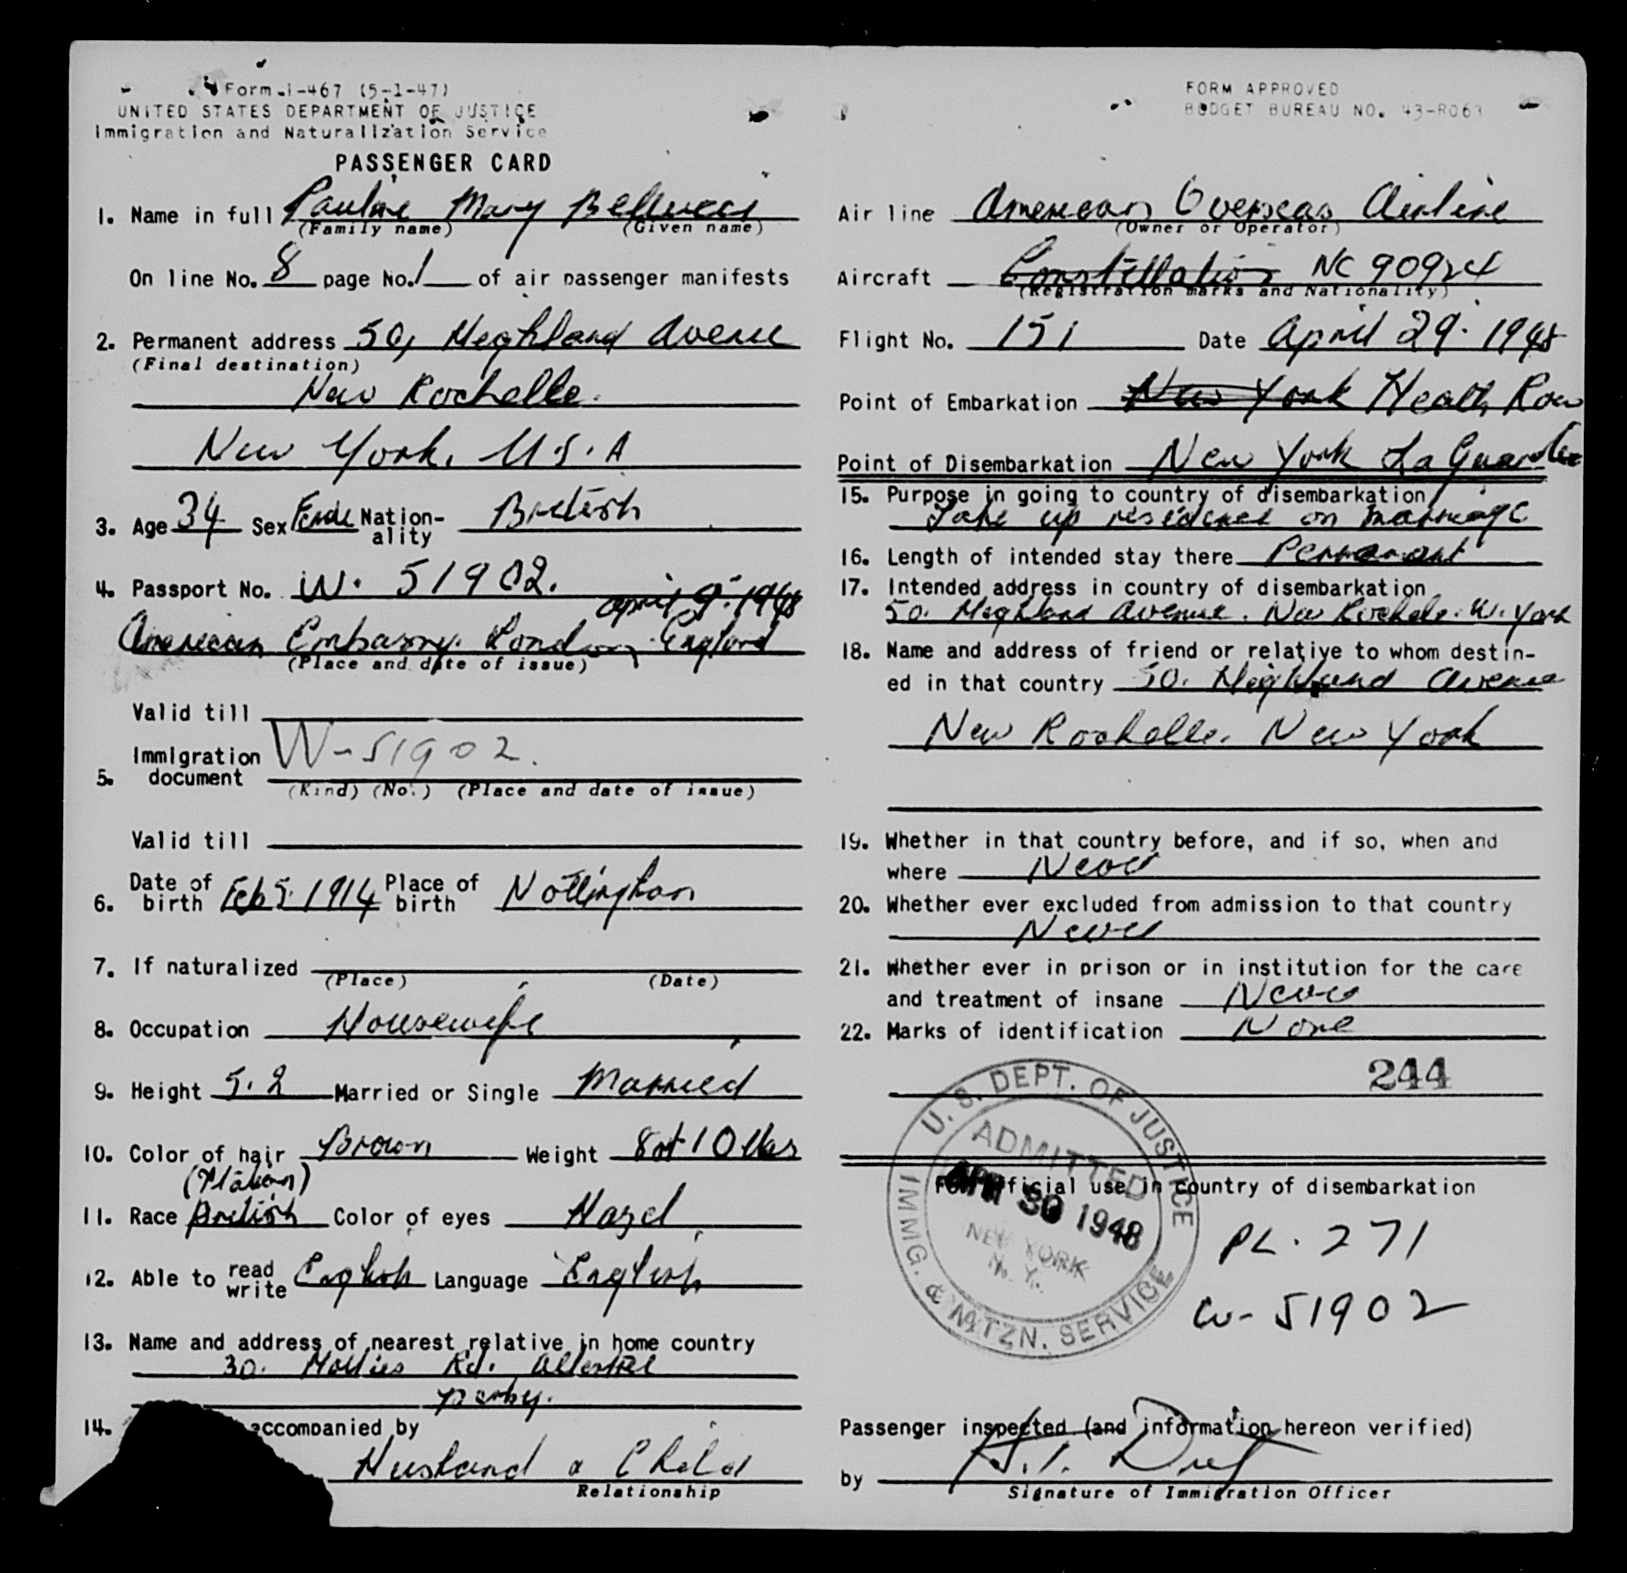 Form I-467 (5-1-47)
UNITED STATES DEPARTMENT OF JUSTICE
Immigration and Naturalization Service
PASSENGER CARD
1. Name in full Pauline Mary Bellucci
(Family name) (Given name)
On line No. 8 page No. 1 of air passenger manifests
2. Permanent address 50, Highland Avenue
(Final destination)
New Rochelle.
New York. U.S.A
3. Age 34 Sex Female Nation-
ality British
4. Passport No. W. 51902.
april 9. 1948
American Embassy. London. England
(Place and date of issue)
Valid till
5. Immigration document W-51902.
(Kind) (No.) (Place and date of issue)
Valid till
6. Date of birth Feb 5. 1914 Place of birth Nottingham
7. If naturalized
(Place) (Date)
8. Occupation Housewife
9. Height 5.2 Married or Single Married
10. Color of hair Brown Weight 8st 10 lbs
(Italian)
11. Race British Color of eyes Hazel
12. Able to read write English Language English
13. Name and address of nearest relative in home country
30. Rd. Allestree
Derby.
14. accompanied by
Husband & Child
Relationship
FORM APPROVED
BUDGET BUREAU NO. 43-R063
Air line American Overseas Airline
(Owner or Operator)
Aircraft Constellation NC 90924
(Registration marks and Nationality)
Flight No. 151 Date April 29. 1948
Point of Embarkation New York Heath Row
Point of Disembarkation New York La Guardia
15. Purpose in going to country of disembarkation
Take up residence on marriage
16. Length of intended stay there Permanent
17. Intended address in country of disembarkation
50. Highland Avenue. New Rochelle. N. York
18. Name and address of friend or relative to whom destin-
ed in that country 50. Highland Avenue
New Rochelle. New York
19. Whether in that country before, and if so, when and
where Never
20. Whether ever excluded from admission to that country
Never
21. Whether ever in prison or in institution for the care
and treatment of insane Never
22. Marks of identification None
244
U. S. DEPT. OF JUSTICE
ADMITTED
APR 30 1948
NEW YORK
N. Y.
IMMIG. & NATZN. SERVICE
For official use in country of disembarkation
PL. 271
W-51902
Passenger inspected (and information hereon verified)
by
Signature of Immigration Officer